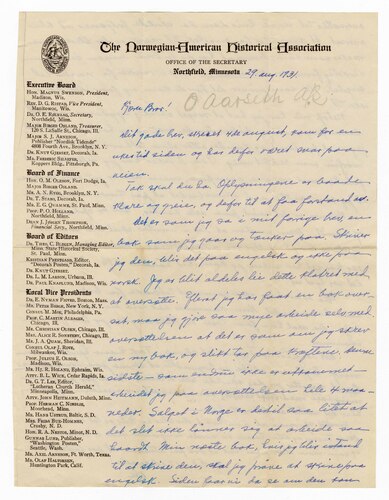 The Norwegian-American Historical Association
OFFICE OF THE SECRETARY
Northfield, Minnesota
29 aug. 1931.
O Aarseth
Executive Board
Hon. Magnus Swenson, President,
Madison, Wis.
Rev. D. G. Ristad, Vice President,
Manitowoc, Wis.
Dr. O. E. Rolvaag, Secretary,
Northfield, Minn.
Major Birger Osland, Treasurer,
120 S. LaSalle St., Chicago, Ill.
Mr. S. J. Arnesen,
Publisher "Nordisk Tidende"
4808 Fourth Ave., Brooklyn, N. Y.
Dr. Knut Gjerset, Decorah, Ia.
Mr. Frederic Schaefer,
Koppers Bldg., Pittsburgh, Pa.
Board of Finance
Hon. O. M. Oleson, Fort Dodge, Ia.
Major Birger Osland.
Mr. A. N. Rygg, Brooklyn, N. Y.
Dr. T. Stabo, Decorah, Ia.
Mr. E. G. Quamme, St. Paul, Minn.
Prof. P. O. Holland,
Northfield, Minn.
Dean J. Jörgen Thompson,
Financial Secy., Northfield, Minn.
Board of Editors
Dr. Theo. C. Blegen, Managing Editor,
Minn. State Historical Society,
St. Paul, Minn.
Mr. Kristian Prestgard, Editor,
"Decorah Posten," Decorah, Ia.
Dr. Knut Gjerset.
Dr. L. M. Larson, Urbana, Ill.
Dr. Paul Knaplund, Madison, Wis.
Local Vice Presidents
Dr. E. Nyman Figved, Boston, Mass.
Mr. Peter Berge, New York, N. Y.
Consul M. Moe, Philadelphia, Pa.
Prof. C. Martin Alsager,
Chicago, Ill.
Mr. Christian Olsen, Chicago, Ill.
Mrs. Alice R. Sorensen, Chicago, Ill.
Mr. J. A. Quam, Sheridan, Ill.
Consul Olaf J. Rove,
Milwaukee, Wis.
Prof. Julius E. Olson,
Madison, Wis.
Mr. Hj. R. Holand, Ephraim, Wis.
Atty. B. L. Wick, Cedar Rapids, Ia.
Dr. G. T. Lee, Editor
"Lutheran Church Herald,"
Minneapolis, Minn.
Atty. John Heitmann, Duluth, Minn.
Prof. Herman C. Nordlie,
Moorhead, Minn.
Mr. Hans Ustrud, Baltic, S. D.
Crosby, N. D.
Hon. R. A. Nestos, Minot, N. D.
Gunnar Lund, Publisher,
"Washington Posten,"
Seattle, Wash.
Mr. Axel Arneson, Ft. Worth, Texas
Mr. Olaf Halvorsen,
Huntington Park, Calif.
Kjære Bror!
dit gode brev, skrevet 4de august, kom for en
ukes tid siden og har derfor været snar paa
veien.
Tak skal du ha. Oplysningene er baade
klare og greie, og derfor til at faa forstand
det er som jeg sa i mit forrige brev, en
bok som jeg gaar og tænker paa. Skriver
jeg den, blir det paa engelsk og ikke paa
norsk. Jeg er blit aldeles lei dette klabret med
at oversætte. Efterat jeg har faat en bok over-
sat, maa jeg gjøre saa mye arbeide selv med
oversættelsen at det er som om jeg skrev
en ny bok, og slikt tar paa kræftene.
sidste som endnu ikke er utkommet
arbeidet jeg paa oversættelsen hele 4 maa-
neder. Salget i Norge er dertil saa litet at
det slet ikke lønner sig at arbeide saa
haardt. Min næste bok, hvis jeg blir istand
til at skrive den, skal jeg prøve at skrive paa
engelsk. Siden faar vi ha se om den kan